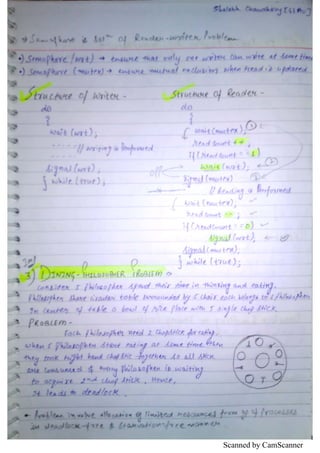 Semaphore is solⁿ of Reader-writer Problem
•) Semaphore (wrt) → ensure that only one writer can write at same time
•) Semaphore (mutex) → ensure mutual exclusion when read is updated
Structure of Writer -
do
{
wait (wrt);
// writing is Performed
signal (wrt);
} while (true);
Structure of Reader -
do
{
wait (mutex);
read count ++;
if (read count == 1)
wait (wrt);
signal (mutex)
// Reading is Performed
wait (mutex);
read count --;
if (read count == 0)
signal (wrt);
signal (mutex);
} while (true);
3) DINING-PHILOSOPHER PROBLEM
Consider 5 Philosopher spend their time in thinking and eating.
Philosopher share circular table surrounded by 5 chair each belongs to 1 Philosopher
In center of table a bowl of rice place with 5 single chop stick.
PROBLEM -
Each Philosopher need 2 chopstick for eating.
when 5 Philosopher start eating at same time then
they took right hand chopstick together so all stick
are consumed & every Philosopher is waiting
to acquire 2nd chop stick. Hence,
It leads to deadlock.
• Problem involve allocation of limited resources from of Processes
in deadlock-free & starvation-free manner
Scanned by CamScanner